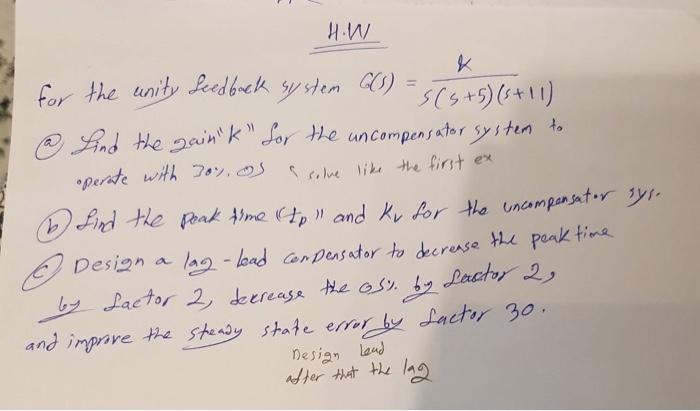 H.W
for the unity feedback system G(s) = k / s(s+5)(s+11)
(a) find the gain "k" for the uncompensator system to
operate with 30%. OS solve like the first ex
(b) find the peak time "tp" and Kv for the uncompensator sys.
(c) Design a lag-lead compensator to decrease the peak time
by factor 2, decrease the OS%. by factor 2,
and improve the steady state error by factor 30.
Design lead
after that the lag